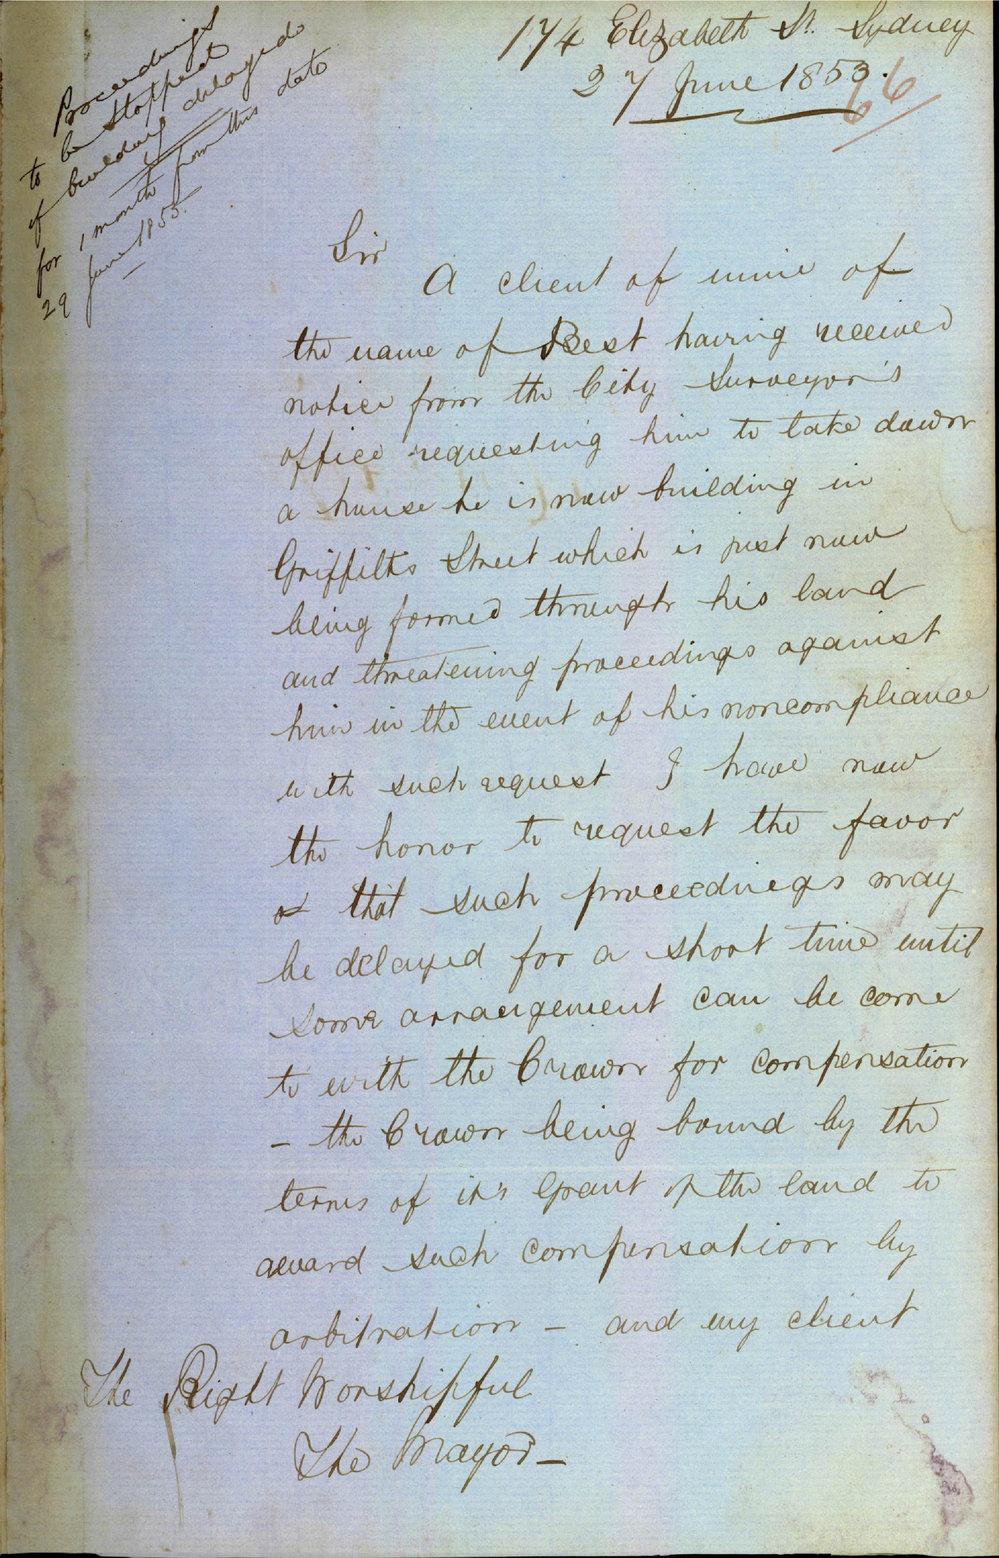 174 Elizabeth St. Sydney
27 June 1853.
66
Proceedings
to be stopped
if building delayed
for 1 month from this date
29 June 1853.
Sir
A client of mine of
the name of Best having received
notice from the City Surveyor's
office requesting him to take down
a house he is now building in
Griffiths Street which is just now
being formed through his land
and threatening proceedings against
him in the event of his noncompliance
with such request I have now
the honor to request the favor
that such proceedings may
be delayed for a short time until
some arrangement can be come
to with the Crown for compensation
- the Crown being bound by the
terms of it's Grant of the land to
award such compensation by
arbitration - and my client
The Right Worshipful
The Mayor -